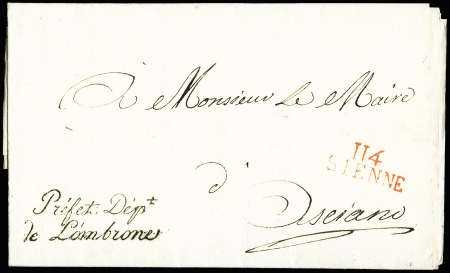 A Monsieur Le Maire
114
SIENNE
d'
Asciano
Préfet. Dépt
de L'ombrone